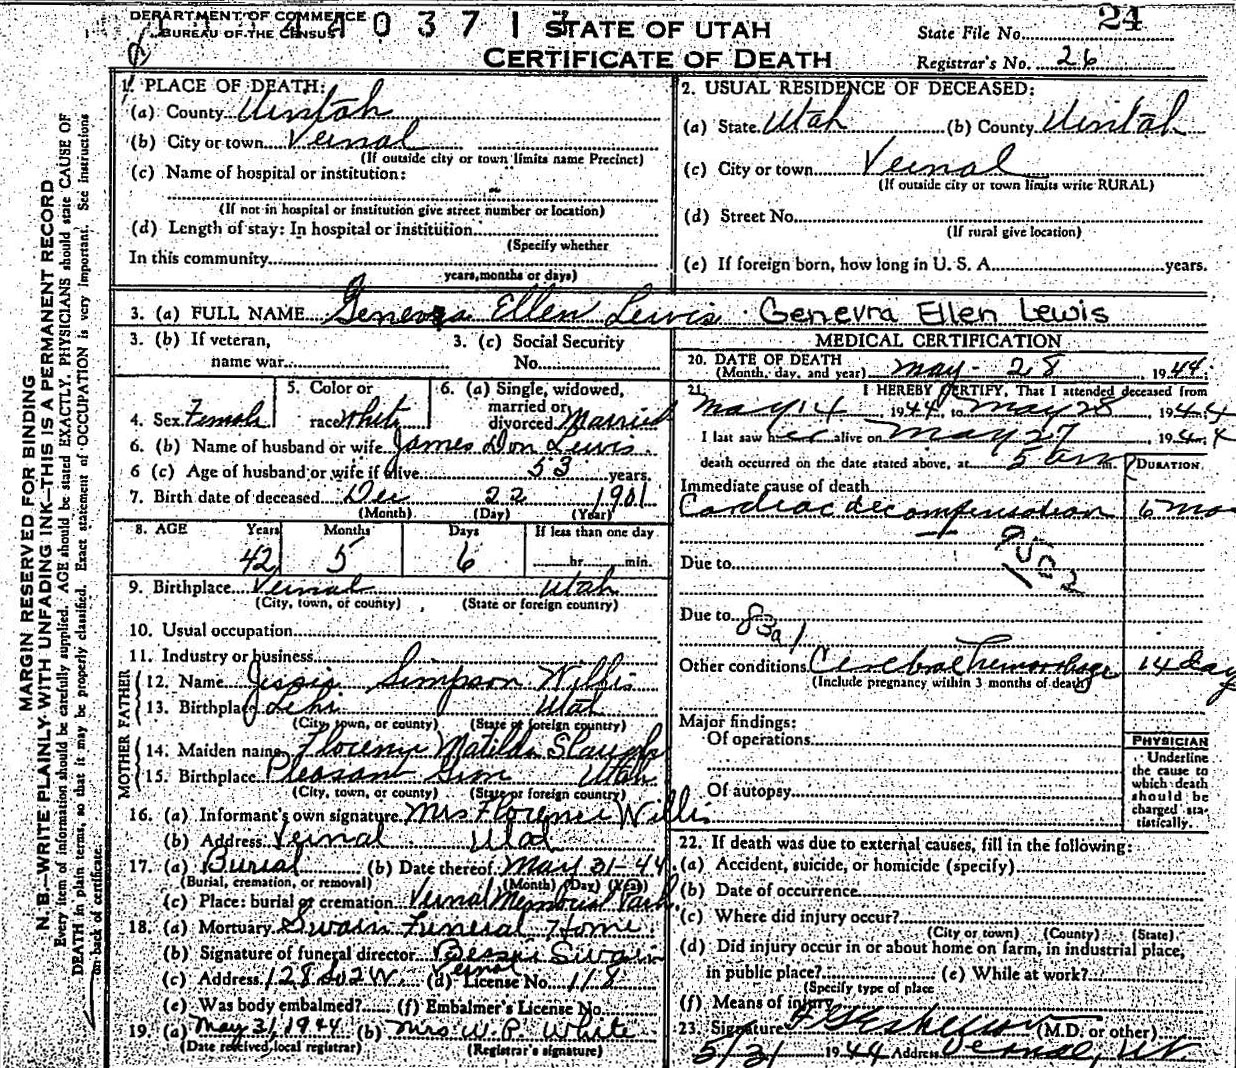 DEPARTMENT OF COMMERCE
BUREAU OF THE CENSUS
0 3 7 1
STATE OF UTAH
CERTIFICATE OF DEATH
State File No. 24
Registrar's No. 26
MARGIN RESERVED FOR BINDING
N. B.—WRITE PLAINLY WITH UNFADING INK—THIS IS A PERMANENT RECORD
Every item of information should be carefully supplied. AGE should be stated EXACTLY. PHYSICIANS should state CAUSE OF
DEATH in plain terms, so that it may be properly classified. Exact statement of OCCUPATION is very important. See instructions
on back of certificate.
1. PLACE OF DEATH:
(a) County Uintah
(b) City or town Vernal
(If outside city or town limits name Precinct)
(c) Name of hospital or institution:
(If not in hospital or institution give street number or location)
(d) Length of stay: In hospital or institution
(Specify whether
In this community
years, months or days)
2. USUAL RESIDENCE OF DECEASED:
(a) State Utah (b) County Uintah
(c) City or town Vernal
(If outside city or town limits write RURAL)
(d) Street No.
(If rural give location)
(e) If foreign born, how long in U. S. A. years.
3. (a) FULL NAME Genevra Ellen Lewis Genevra Ellen Lewis
3. (b) If veteran,
name war
3. (c) Social Security
No.
4. Sex Female
5. Color or
race White
6. (a) Single, widowed,
married or
divorced Married
6. (b) Name of husband or wife James Don Lewis
6 (c) Age of husband or wife if alive 53 years.
7. Birth date of deceased Dec 22 1901
(Month) (Day) (Year)
8. AGE Years Months Days If less than one day
42 5 6 hr. min.
9. Birthplace Vernal Utah
(City, town, or county) (State or foreign country)
10. Usual occupation
11. Industry or business
FATHER
12. Name Simpson Willis
13. Birthplace Lehi Utah
(City, town, or county) (State or foreign country)
MOTHER
14. Maiden name Matilda Slaugh
15. Birthplace Pleasant Utah
(City, town, or county) (State or foreign country)
16. (a) Informant's own signature Mrs Florence Willis
(b) Address Vernal Utah
17. (a) Burial (b) Date thereof May 31-44
(Burial, cremation, or removal) (Month) (Day) (Year)
(c) Place: burial or cremation Vernal Memorial Park
18. (a) Mortuary Swain Funeral Home
(b) Signature of funeral director Swain
(c) Address Vernal (d) License No. 118
(e) Was body embalmed? (f) Embalmer's License No.
19 (a) May 31, 1944 (b) Mrs W. P. White
(Date received local registrar) (Registrar's signature)
MEDICAL CERTIFICATION
20. DATE OF DEATH
(Month, day, and year) May - 28, 1944
21. I HEREBY CERTIFY, That I attended deceased from
May 14, 1944, to May 28, 1944
I last saw her alive on May 27, 1944
death occurred on the date stated above, at 5 am m.
DURATION
Immediate cause of death
Cardiac decompensation 6 mos
Due to
Due to 83a1
Other conditions Cerebral hemorrhage 14 day
(Include pregnancy within 3 months of death)
Major findings:
Of operations
Of autopsy
PHYSICIAN
Underline
the cause to
which death
should be
charged sta-
tistically.
22. If death was due to external causes, fill in the following:
(a) Accident, suicide, or homicide (specify)
(b) Date of occurrence
(c) Where did injury occur?
(City or town) (County) (State)
(d) Did injury occur in or about home on farm, in industrial place,
in public place? (e) While at work?
(Specify type of place
(f) Means of injury
23. Signature (M.D. or other)
5/31 1944 Address Vernal, Ut.